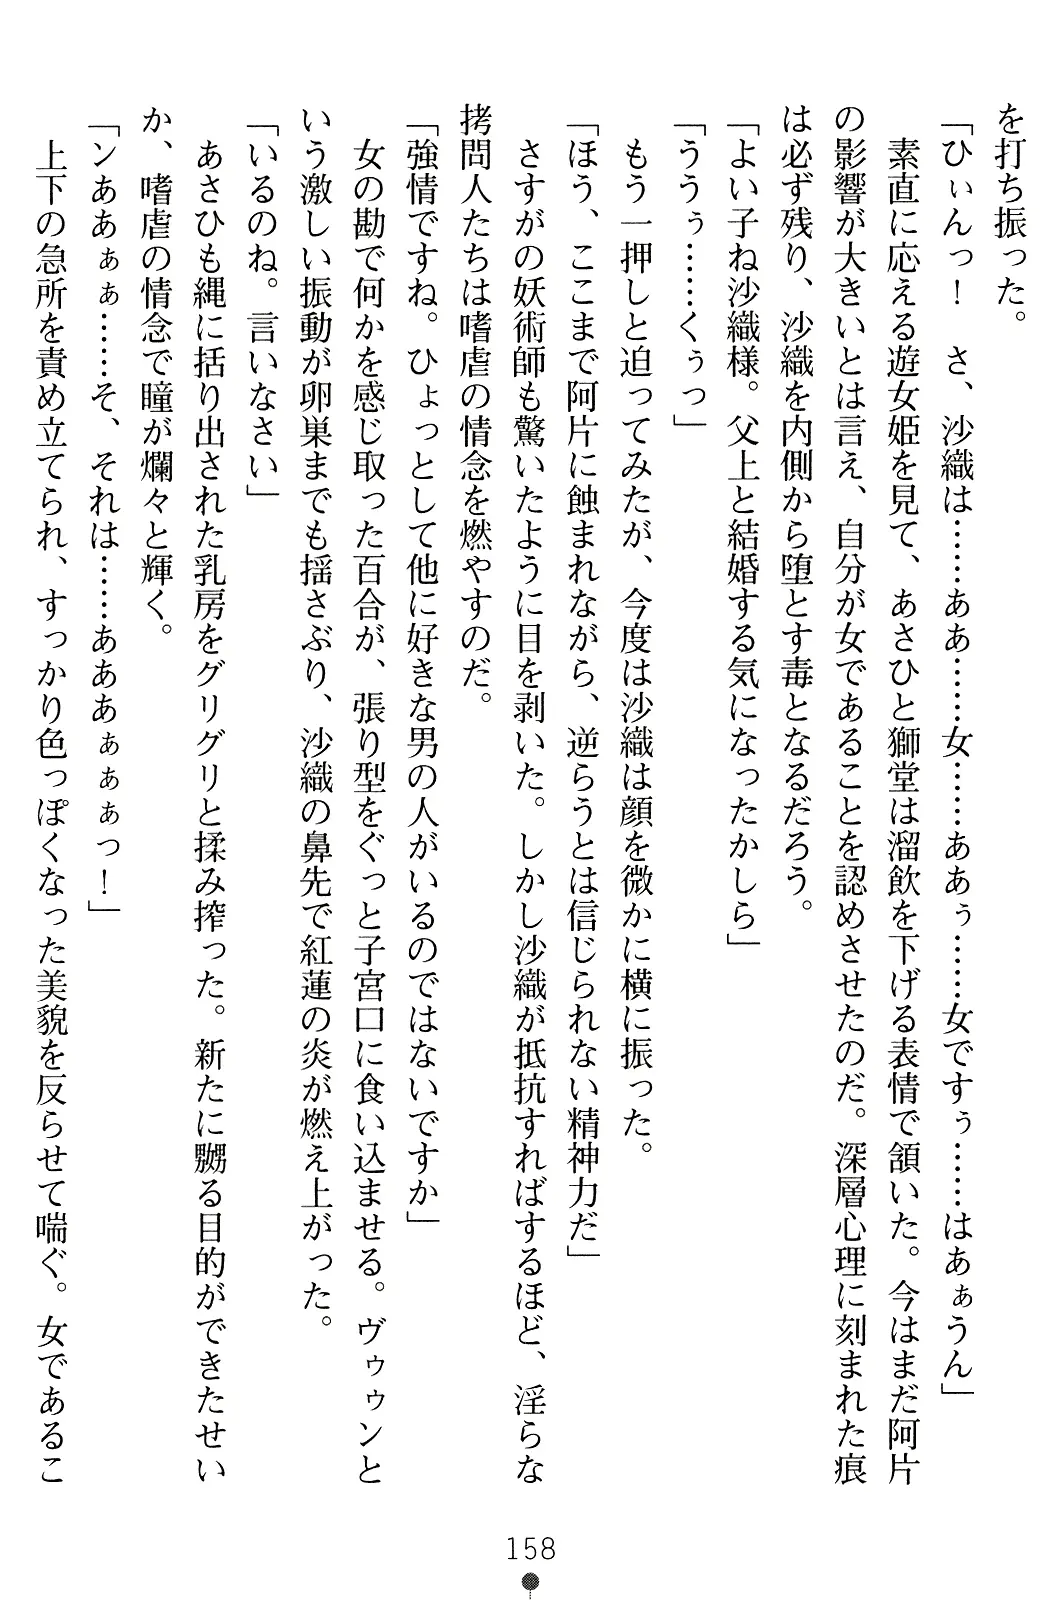 を打ち振った。
「ひぃんっ！　さ、沙織は……ああ……女……ああぅ……女ですぅ……はあぁうん」
　素直に応える遊女姫を見て、あさひと獅堂は溜飲を下げる表情で頷いた。今はまだ阿片
の影響が大きいとは言え、自分が女であることを認めさせたのだ。深層心理に刻まれた痕
は必ず残り、沙織を内側から堕とす毒となるだろう。
「よい子ね沙織様。父上と結婚する気になったかしら」
「ううぅ……くぅっ」
　もう一押しと迫ってみたが、今度は沙織は顔を微かに横に振った。
「ほう、ここまで阿片に蝕まれながら、逆らうとは信じられない精神力だ」
　さすがの妖術師も驚いたように目を剥いた。しかし沙織が抵抗すればするほど、淫らな
拷問人たちは嗜虐の情念を燃やすのだ。
「強情ですね。ひょっとして他に好きな男の人がいるのではないですか」
　女の勘で何かを感じ取った百合が、張り型をぐっと子宮口に食い込ませる。ヴゥゥンと
いう激しい振動が卵巣までも揺さぶり、沙織の鼻先で紅蓮の炎が燃え上がった。
「いるのね。言いなさい」
　あさひも縄に括り出された乳房をグリグリと揉み搾った。新たに嬲る目的ができたせい
か、嗜虐の情念で瞳が爛々と輝く。
「ンああぁぁ……そ、それは……あああぁぁぁっ！」
　上下の急所を責め立てられ、すっかり色っぽくなった美貌を反らせて喘ぐ。女であるこ
158